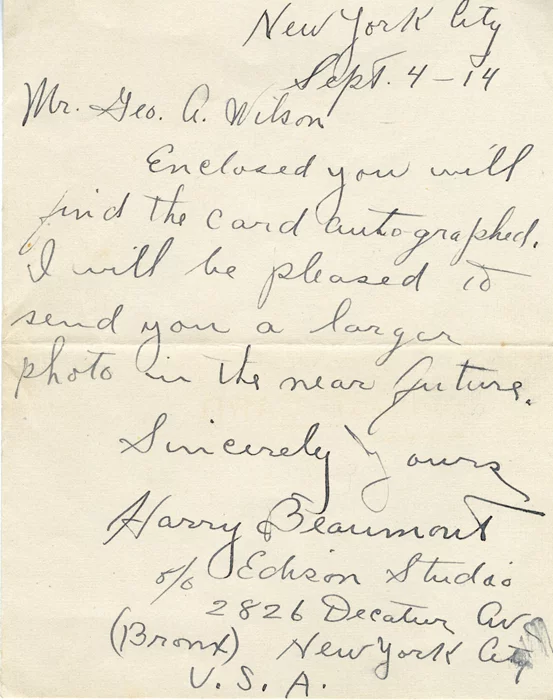 New York City
Sept. 4-14
Mr. Geo. A. Wilson
Enclosed you will
find the card autographed.
I will be pleased to
send you a larger
photo in the near future.
Sincerely Yours
Harry Beaumont
c/o Edison Studio
2826 Decatur Av
(Bronx) New York City
U. S. A.